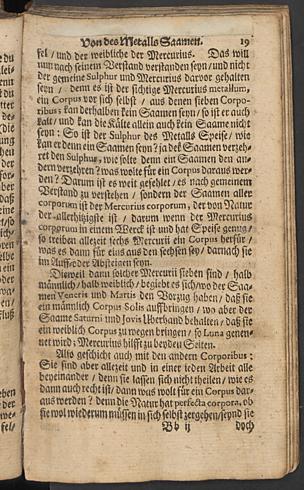 Von des Metalls Saamen. 19
fel / und der weibliche der Mercurius. Das will
nun nach seinem Verstand verstanden seyn / und nicht
der gemeine Sulphur und Mercurius darvor gehalten
seyn / denn es ist der sichtige Mercurius metallum,
ein Corpus vor sich selbst / aus denen sieben Corpo-
ribus: kan derhalben kein Saamen seyn / so ist er auch
kalt / und kan die Kälte allein auch kein Saame nicht
seyn: So ist der Sulphur des Metalls Speise / wie
kan er denn ein Saamen seyn? ja das Saamen verzeh-
ret den Sulphur, wie solte denn ein Saamen den an-
dern verzehren? was wolte für ein Corpus daraus wer-
den? Darum ist es weit gefehlet / es nach gemeinem
Verstand zu verstehen / sondern der Saamen aller
corporum ist der Mercurius corporum, der von Natur
der allerhitzigste ist / darum wenn der Mercurius
corporum in einem Werck ist und hat Speise genug /
so treiben allezeit sechs Mercurii ein Corpus herfür /
was es dann für eins aus den sechsen sey / darnach sie
im Auff- oder Absteigen seyn.
Dieweil dann solcher Mercurii sieben sind / halb
männlich / halb weiblich / begiebt es sich / wo der Saa-
men Veneris und Martis den Vorzug haben / daß sie
ein männlich Corpus Solis auffbringen / wo aber der
Saame Saturni und Jovis Uberhand behalten / daß sie
ein weiblich Corpus zu wegen bringen / so Luna genen-
net wird; Mercurius hilfft zu beyden Seiten.
Also geschicht auch mit den andern Corporibus:
Sie sind aber allezeit und in einer ieden Arbeit alle
beyeinander / denn sie lassen sich nicht theilen / wie es
dann auch recht ist / dann was wolt für ein Corpus dar-
aus werden? denn die Natur hat perfecta corpora, ob
sie wol wiederum müssen in sich selbst zergehen / seynd sie
Bb ij doch